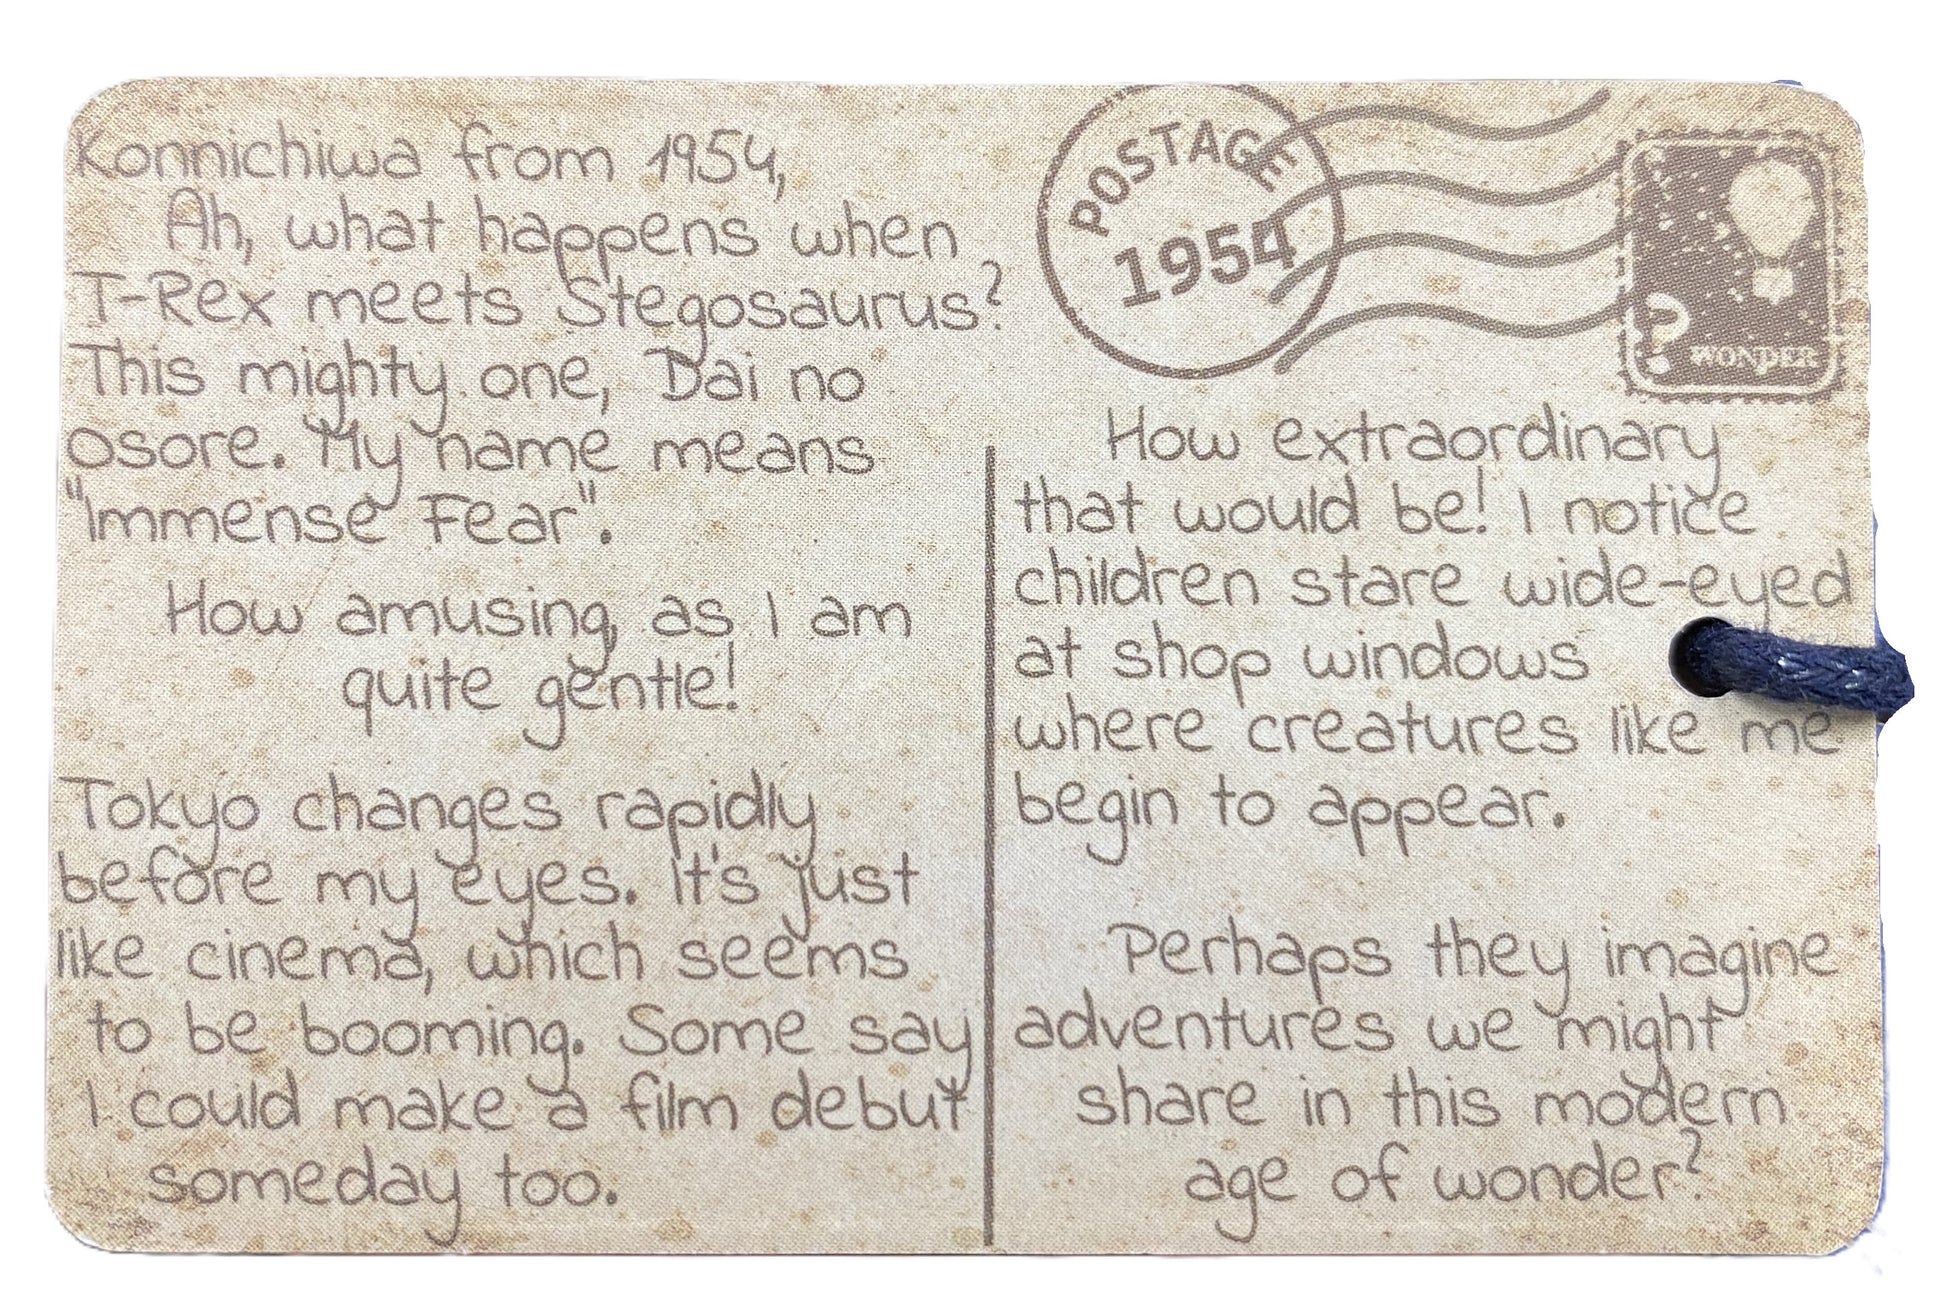 Konnichiwa from 1954,
Ah, what happens when
T-Rex meets Stegosaurus?
This mighty one, Dai no
Osore. My name means
"Immense Fear".
How amusing, as I am
quite gentle!
Tokyo changes rapidly
before my eyes. It's just
like cinema, which seems
to be booming. Some say
I could make a film debut
someday too.
POSTAGE
1954
? WONDER
How extraordinary
that would be! I notice
children stare wide-eyed
at shop windows
where creatures like me
begin to appear.
Perhaps they imagine
adventures we might
share in this modern
age of wonder?